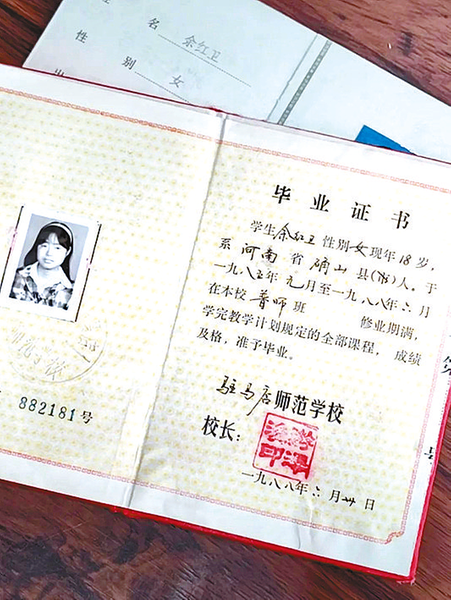 名 余红卫
性 别 女
毕业证书
学生余红卫性别女现年18岁,
系河南省确山县(市)人,于
一九八五年元月至一九八八年六月
在本校普师班 修业期满,
学完教学计划规定的全部课程,成绩
及格,准予毕业。
驻马店师范学校
校长:
一九八八年六月卅日
师范学校
882181号